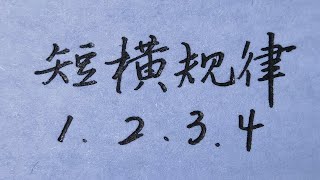 短横规律
1.2.3.4